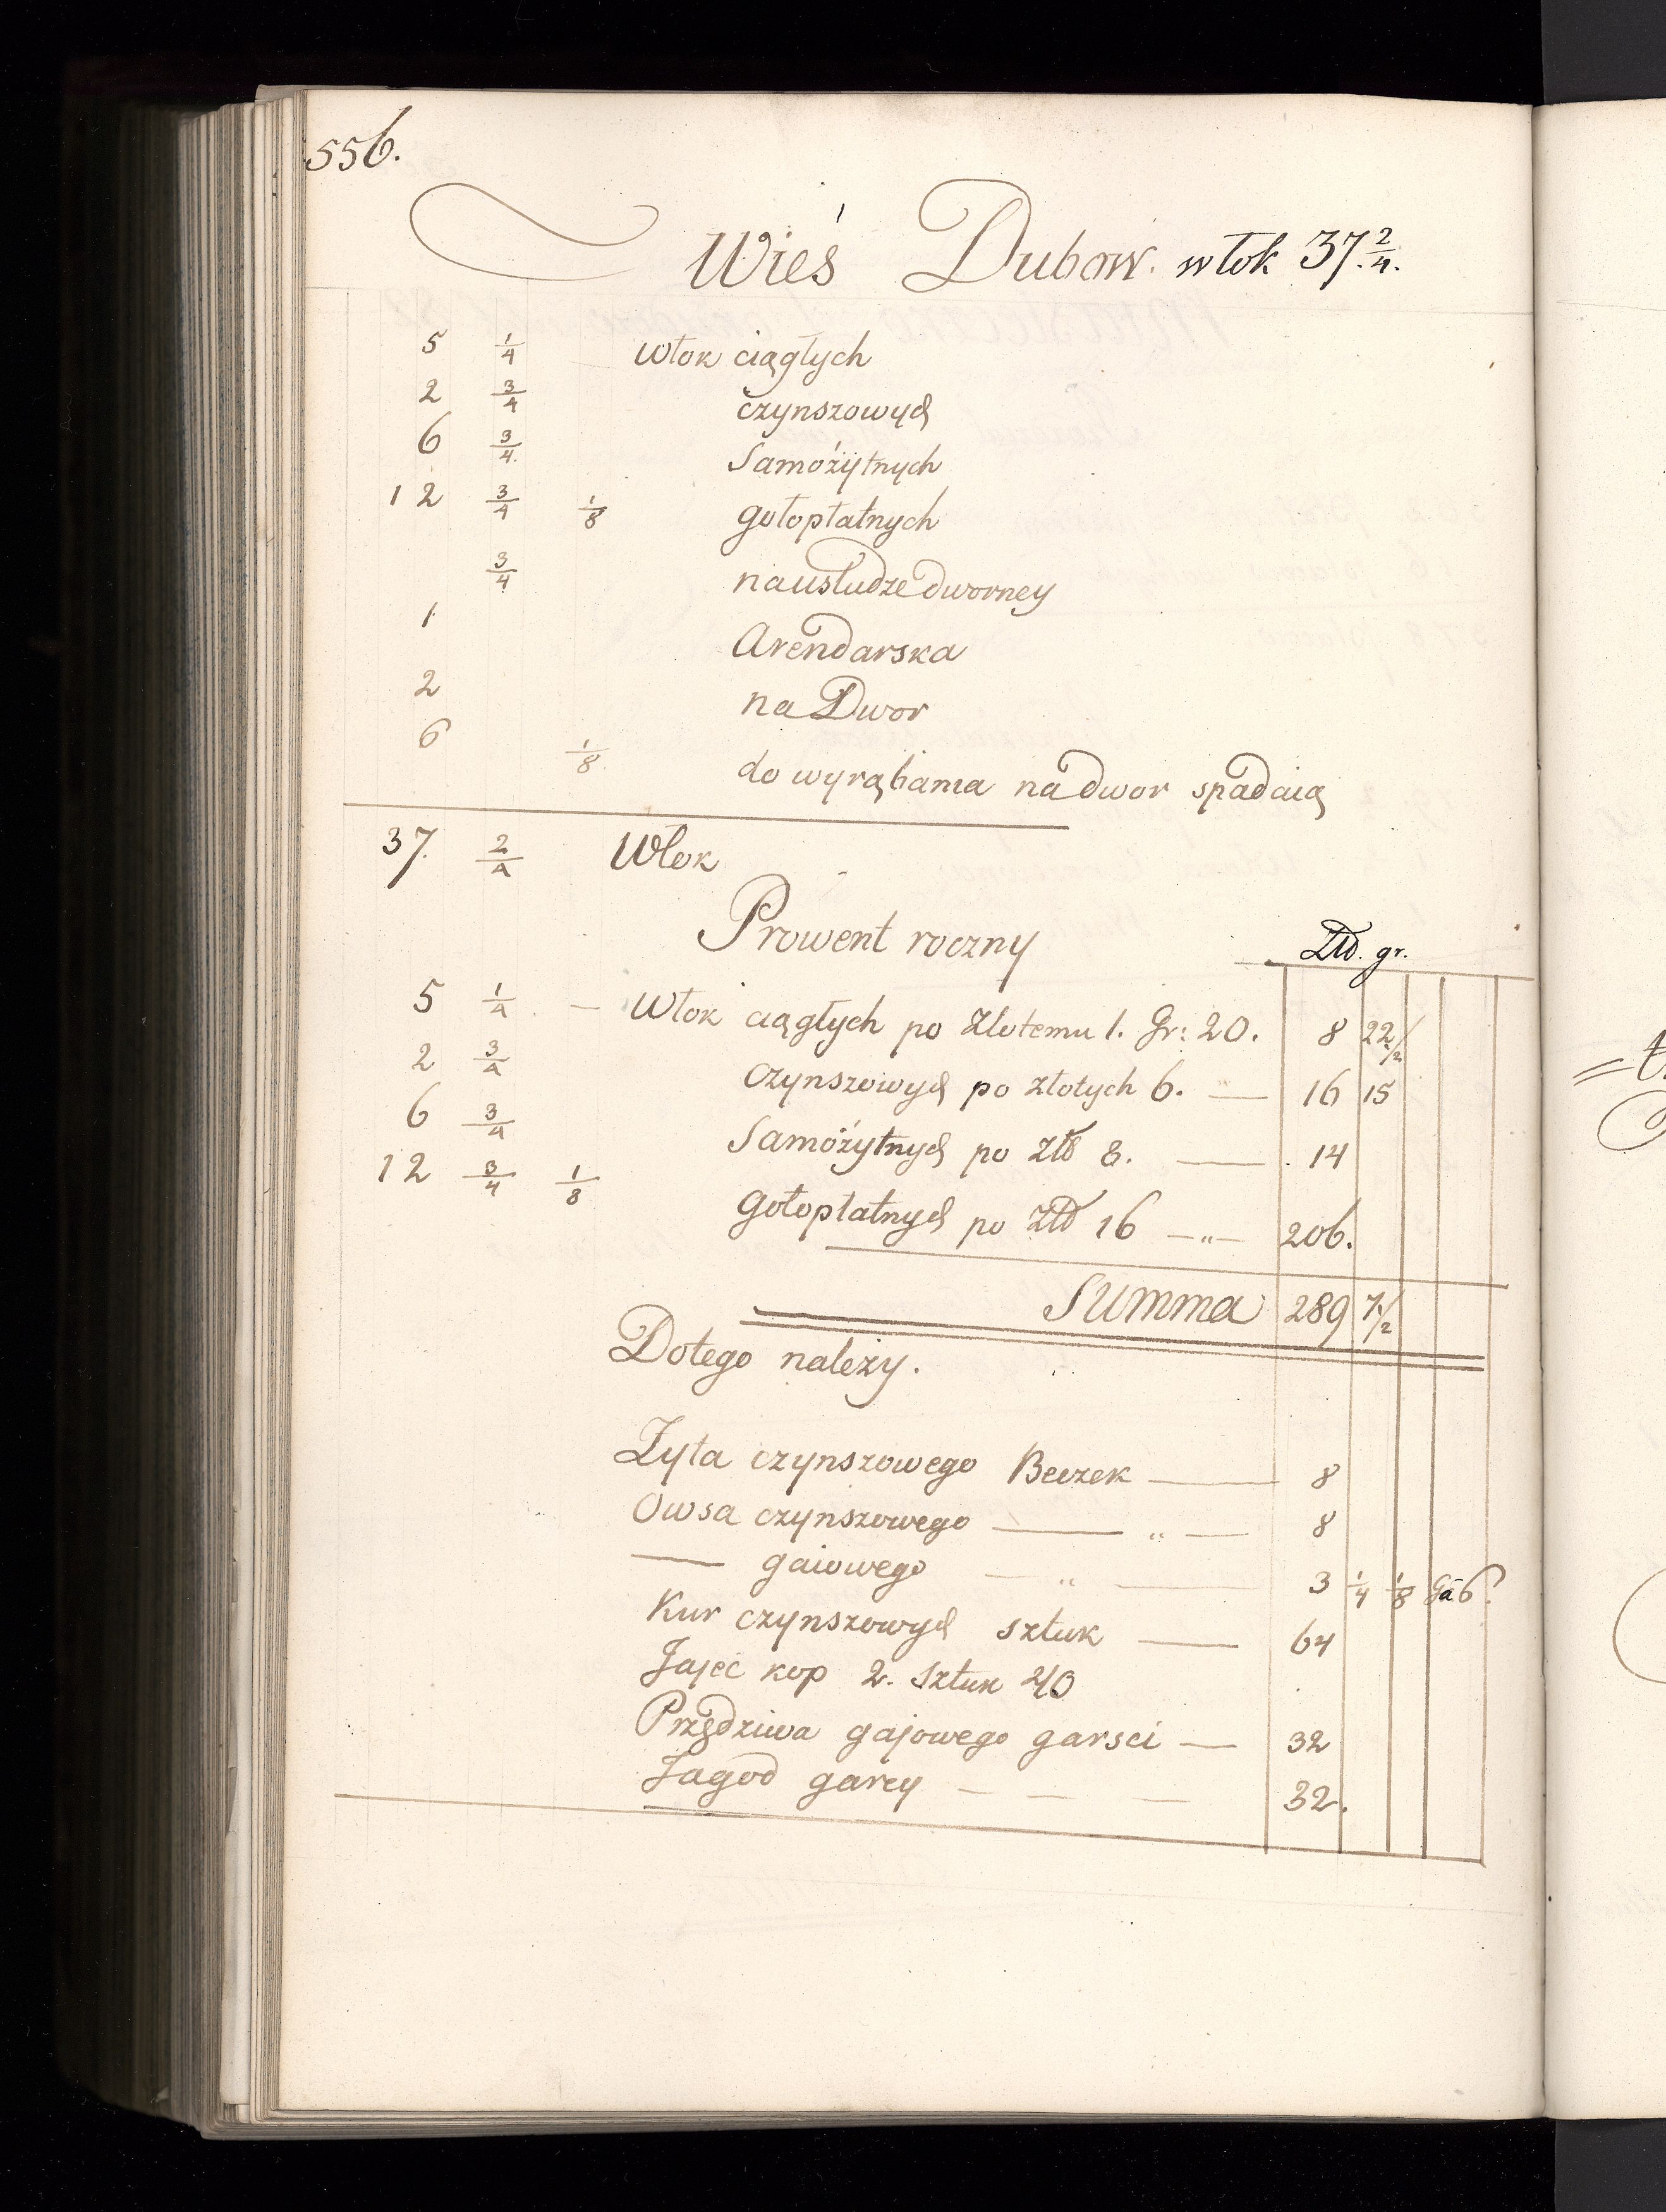 556.
Wieś Dubow. włok 37. 2/4.
5 1/4 włok ciągłych
2 3/4 czynszowych
6 3/4. Samożytnych
12 3/4 1/8 gołopłatnych
3/4 na usłudze dworney
1 Arendarska
2 na Dwor
6 1/8 do wyrąbania na dwor spadaią
37. 2/4 Włok
Prowent roczny Złł. gr.
5 1/4 — Włok ciągłych po Złotemu 1. Gr: 20. 8 22 1/2
2 3/4 Czynszowych po złotych 6. — 16 15
6 3/4 Samożytnych po złł 8. — 14
12 3/4 1/8 gołopłatnych po Złł 16 —„— 206.
Summa 289 7 1/2
Do tego nalezy.
Zyta czynszowego Beczek — 8
Owsa czynszowego — „ — 8
— gaiowego — „ — 3 1/4 1/8 Ga 6
Kur czynszowych sztuk — 64
Jajec kop 2. sztuk 40
Przędziwa gajowego garsci — 32
Jagod garcy — — — 32.